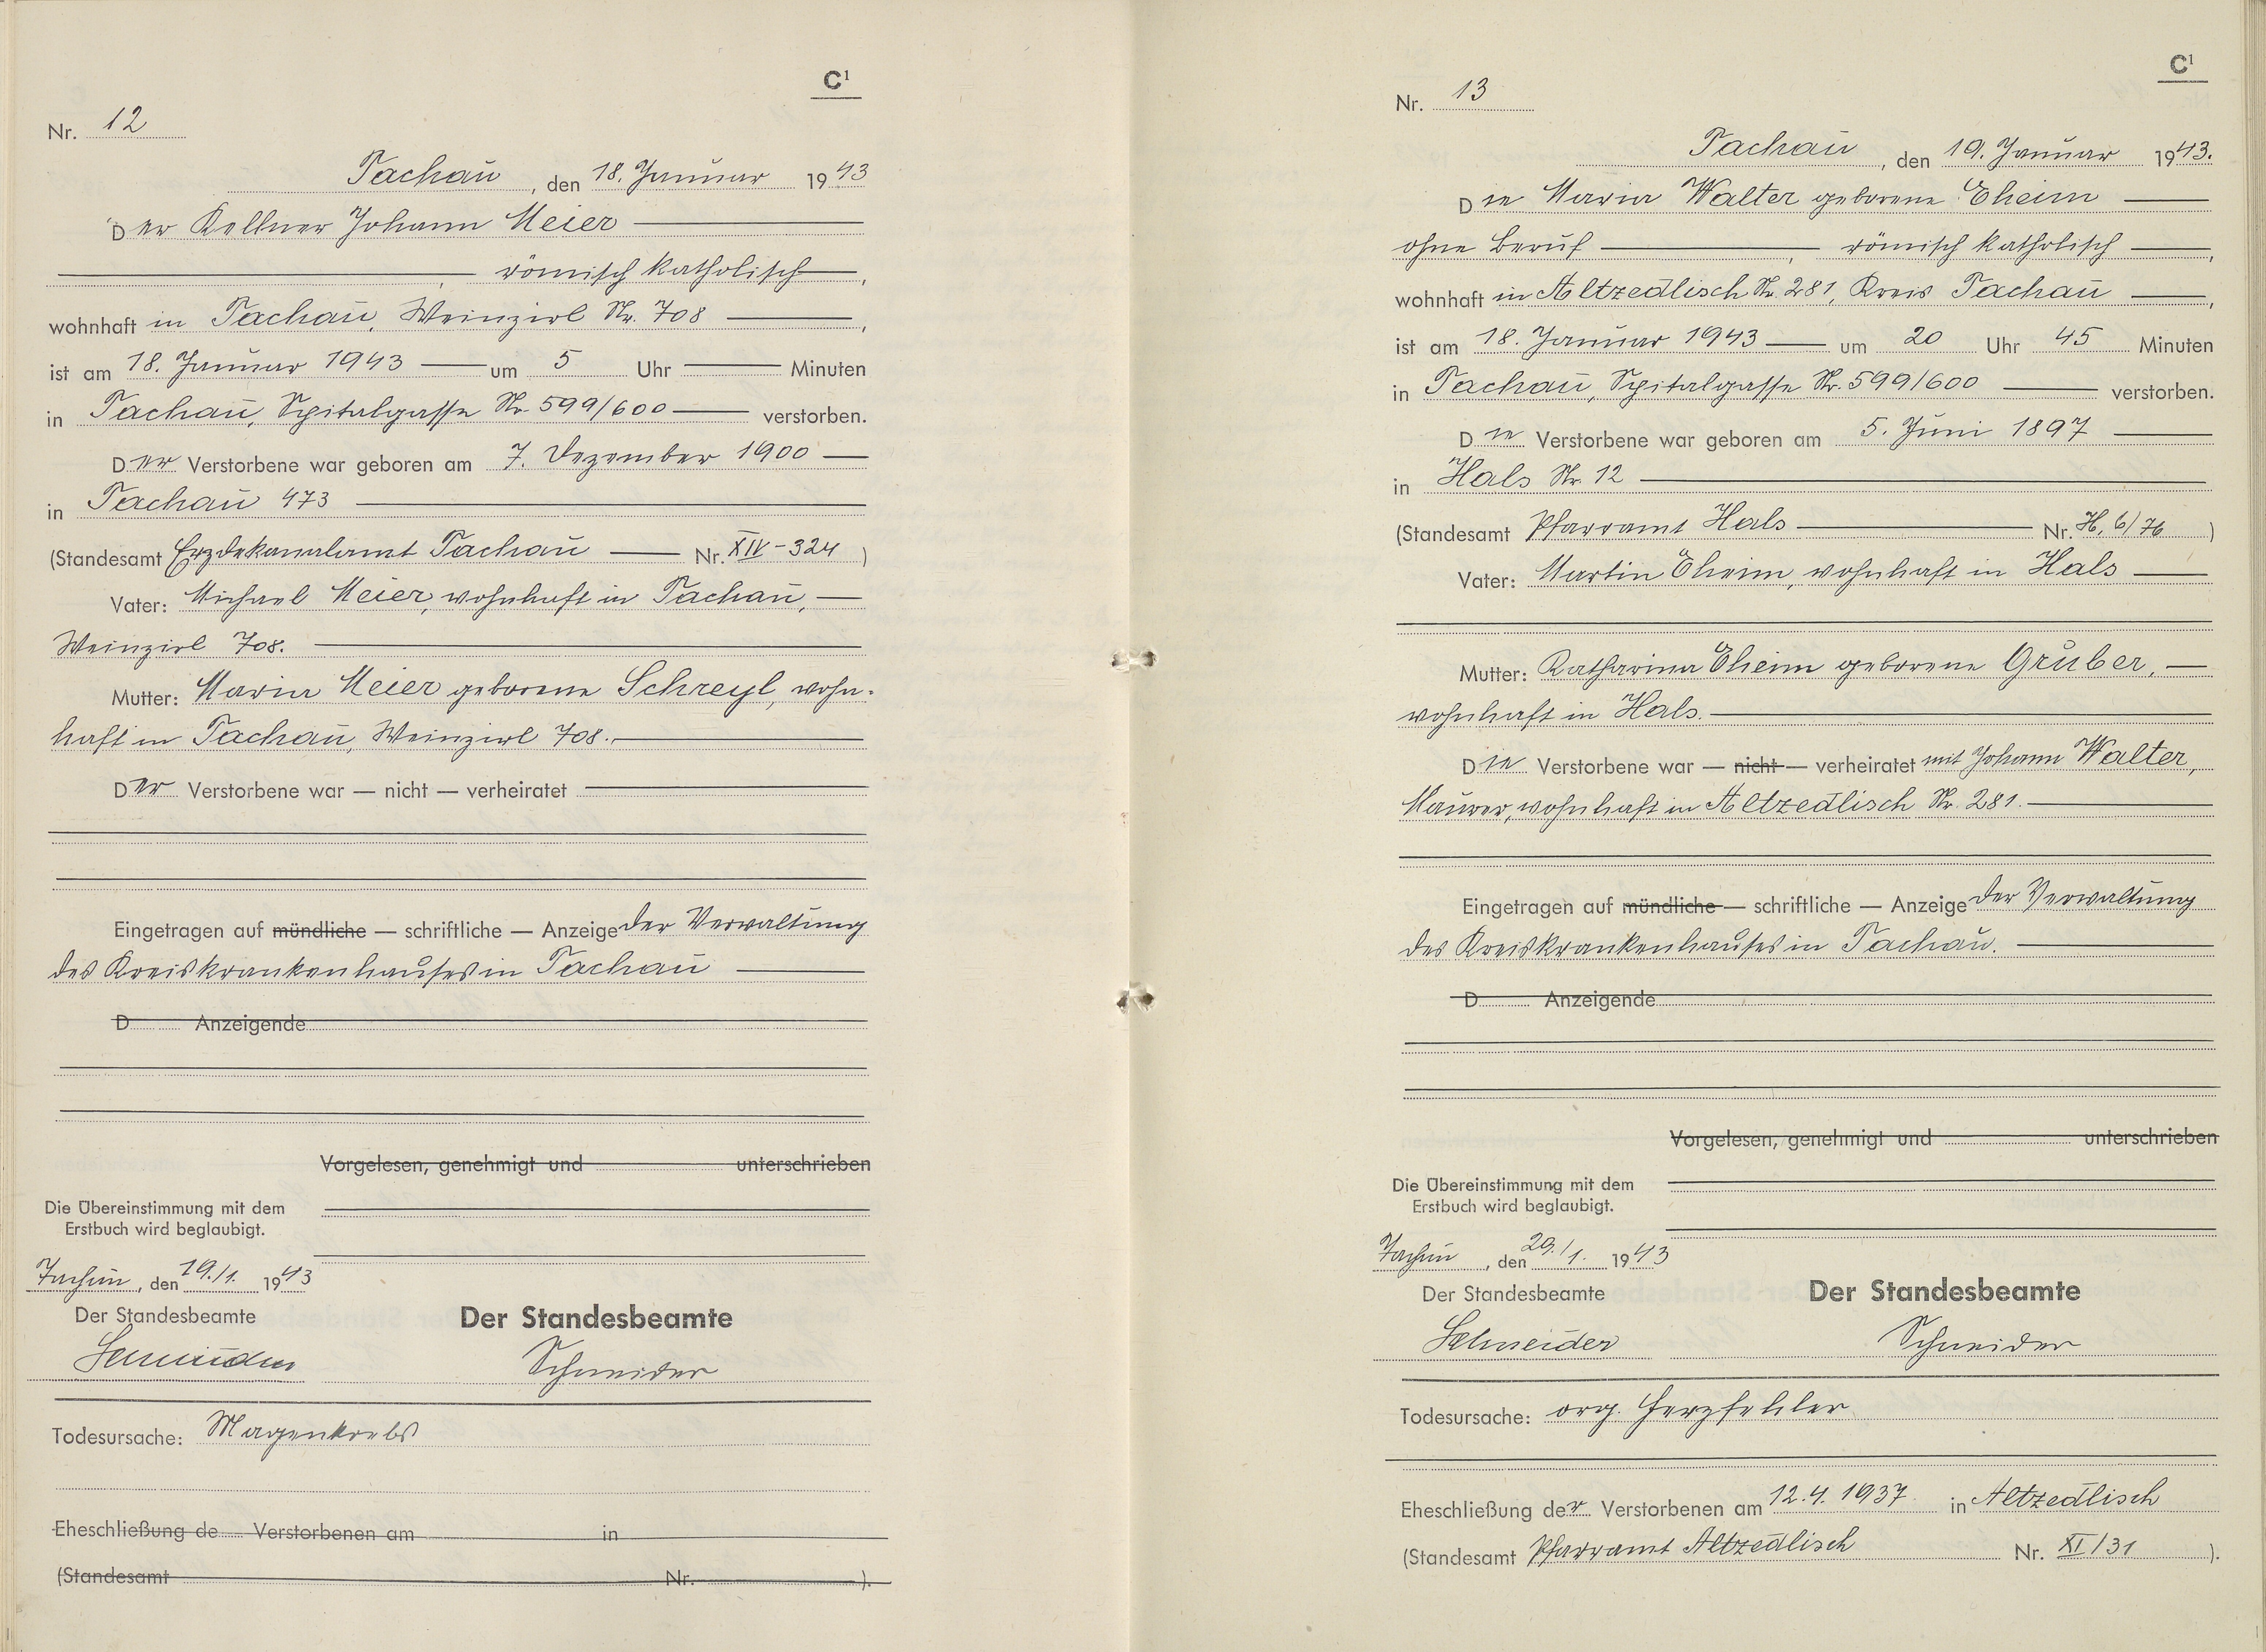 C¹
Nr. 12
Tachau, den 18. Januar 1943
Der Kellner Johann Meier
römisch katholisch,
wohnhaft in Tachau, Weinzirl Nr. 708,
ist am 18. Januar 1943 um 5 Uhr Minuten
in Tachau, Spitalgasse Nr. 599/600 verstorben.
Der Verstorbene war geboren am 7. Dezember 1900
in Tachau 473
(Standesamt Erzdekanalamt Tachau Nr. XIV-324)
Vater: Michael Meier, wohnhaft in Tachau,
Weinzirl 708.
Mutter: Maria Meier geborene Schreyl, wohn-
haft in Tachau, Weinzirl 708.
Der Verstorbene war — nicht — verheiratet
Eingetragen auf mündliche — schriftliche — Anzeige der Verwaltung
des Kreiskrankenhauses in Tachau
D Anzeigende
Vorgelesen, genehmigt und unterschrieben
Die Übereinstimmung mit dem
Erstbuch wird beglaubigt.
Tachau, den 19./1. 1943
Der Standesbeamte Der Standesbeamte
Schneider Schneider
Todesursache: Magenkrebs
Eheschließung de Verstorbenen am in
(Standesamt Nr. ).
C¹
Nr. 13
Tachau, den 19. Januar 1943.
Die Maria Walter geborene Eheim
ohne Beruf, römisch katholisch,
wohnhaft in Altzedlisch Nr. 281, Kreis Tachau,
ist am 18. Januar 1943 um 20 Uhr 45 Minuten
in Tachau, Spitalgasse Nr. 599/600 verstorben.
Die Verstorbene war geboren am 5. Juni 1897
in Hals Nr. 12
(Standesamt Pfarramt Hals Nr. H, 6/76)
Vater: Martin Eheim, wohnhaft in Hals
Mutter: Katharina Eheim geborene Gruber,
wohnhaft in Hals.
Die Verstorbene war — nicht — verheiratet mit Johann Walter,
Maurer, wohnhaft in Altzedlisch Nr. 281.
Eingetragen auf mündliche — schriftliche — Anzeige der Verwaltung
des Kreiskrankenhauses in Tachau.
D Anzeigende
Vorgelesen, genehmigt und unterschrieben
Die Übereinstimmung mit dem
Erstbuch wird beglaubigt.
Tachau, den 20./1. 1943
Der Standesbeamte Der Standesbeamte
Schneider Schneider
Todesursache: org. Herzfehler
Eheschließung der Verstorbenen am 12.4.1937 in Altzedlisch
(Standesamt Pfarramt Altzedlisch Nr. XI/31 ).